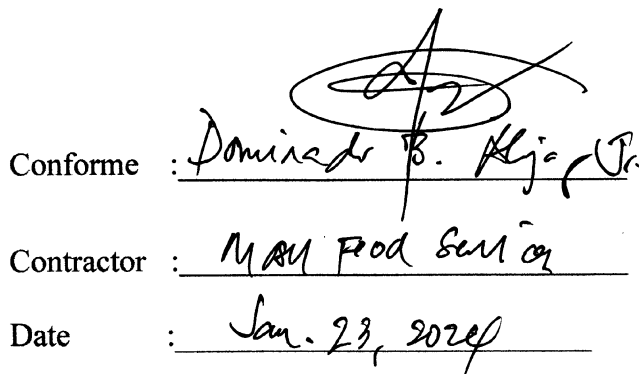 Conforme : Dominador B. Jr.
Contractor : Food Services
Date : Jan. 23, 2024